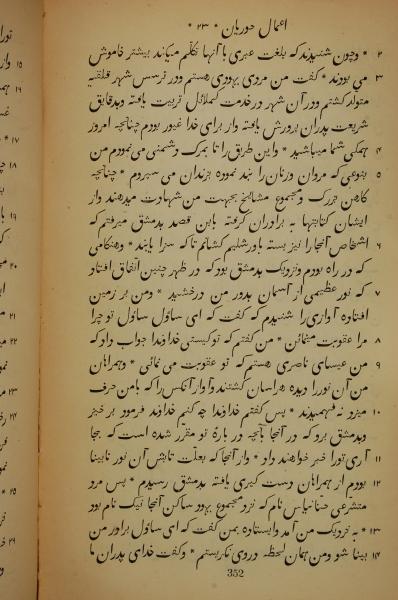 اعمال حوریان * ۲۳ *
۲ * وچون شنیدند که بلغت عبری با آنها تکلّم میکند بیشتر خاموش
۳ می بودند * گفت من مردی یهودی هستم ودر ترسس شهر قلقیه
متولد گشتم ودر آن شهر در خدمت کملائل تربیت یافته وبدقایق
شریعت پدران پرورش یافته واز برای خدا غیور بودم چنانچه امروز
۴ همکی شما میباشید * واین طریق را تا بمرک دشمنی می نمودم من
۵ بنوعی که مردان وزنان را بند نموده بزندان می سپردم * چنانچه
کاهن بزرک ومجموع مشایخ بجهت من شهادت میدهند واز
ایشان کتابتها به برادران گرفته باین قصد بدمشق میرفتم که
۶ اشخاص آنجا را نیز بسته باورشلیم کشانم تا که سزا یابند * وهنکامی
که در راه بودم ونزدیک بدمشق بود که در ظهر چنین اتّفاق افتاد
۷ که نور عظیمی از آسمان بدور من درخشید * ومن بر زمین
افتاده آوازی را شنیدم که گفت که ای ساؤل ساؤل تو چرا
۸ مرا عقوبت مینمائی * من گفتم که تو کیستی خداوندا جواب داد که
۹ من عیسای ناصری هستم که تو عقوبت می نمائی * وهمراهان
من آن نور را دیده هراسان گشتند وآواز آنکس را که با من حرف
۱۰ میزد نه فهمیدند * پس گفتم خداوندا چه کنم خداوند فرمود بر خیز
وبدمشق برو که در آنجا بآنچه در بارهٔ تو مقرّر شده است که بجا
۱۱ آری تورا خبر خواهند داد * واز آنجا که بعلّت تابش آن نور نابینا
۱۲ بودم از همراهان دست گیری یافته بدمشق رسیدم * پس مرد
متشرّعی حنانیاس نام که نزد مجموع یهود ساکن آنجا نیک نام بود
۱۳ * به نزدیک من آمد وایستاده بمن گفت که ای ساؤل برادر من
۱۴ بینا شو ومن همان لحظه در وی نکریستم * وگفت خدای پدران ما
352